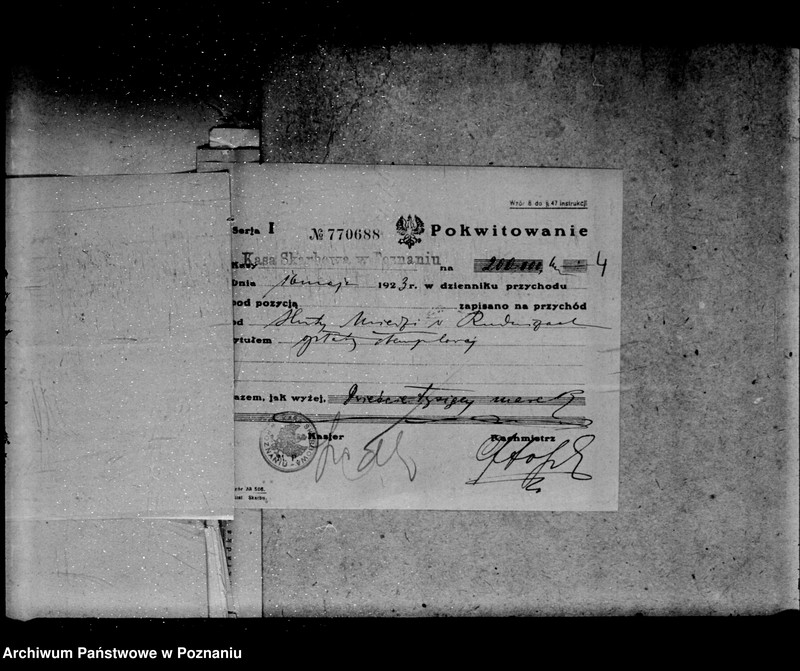 Wzór 8 do § 47 instrukcji
Serja I № 770688 Pokwitowanie
Kasa Skarbowa w Poznaniu
na 200 000
Dnia 16 maja 1923 r. w dzienniku przychodu
pod pozycją zapisano na przychód
od Huty Miedzi w
tytułem opłaty stemplowej
azem, jak wyżej, Dwieście tysięcy marek
Kasjer Rachmistrz
Archiwum Państwowe w Poznaniu